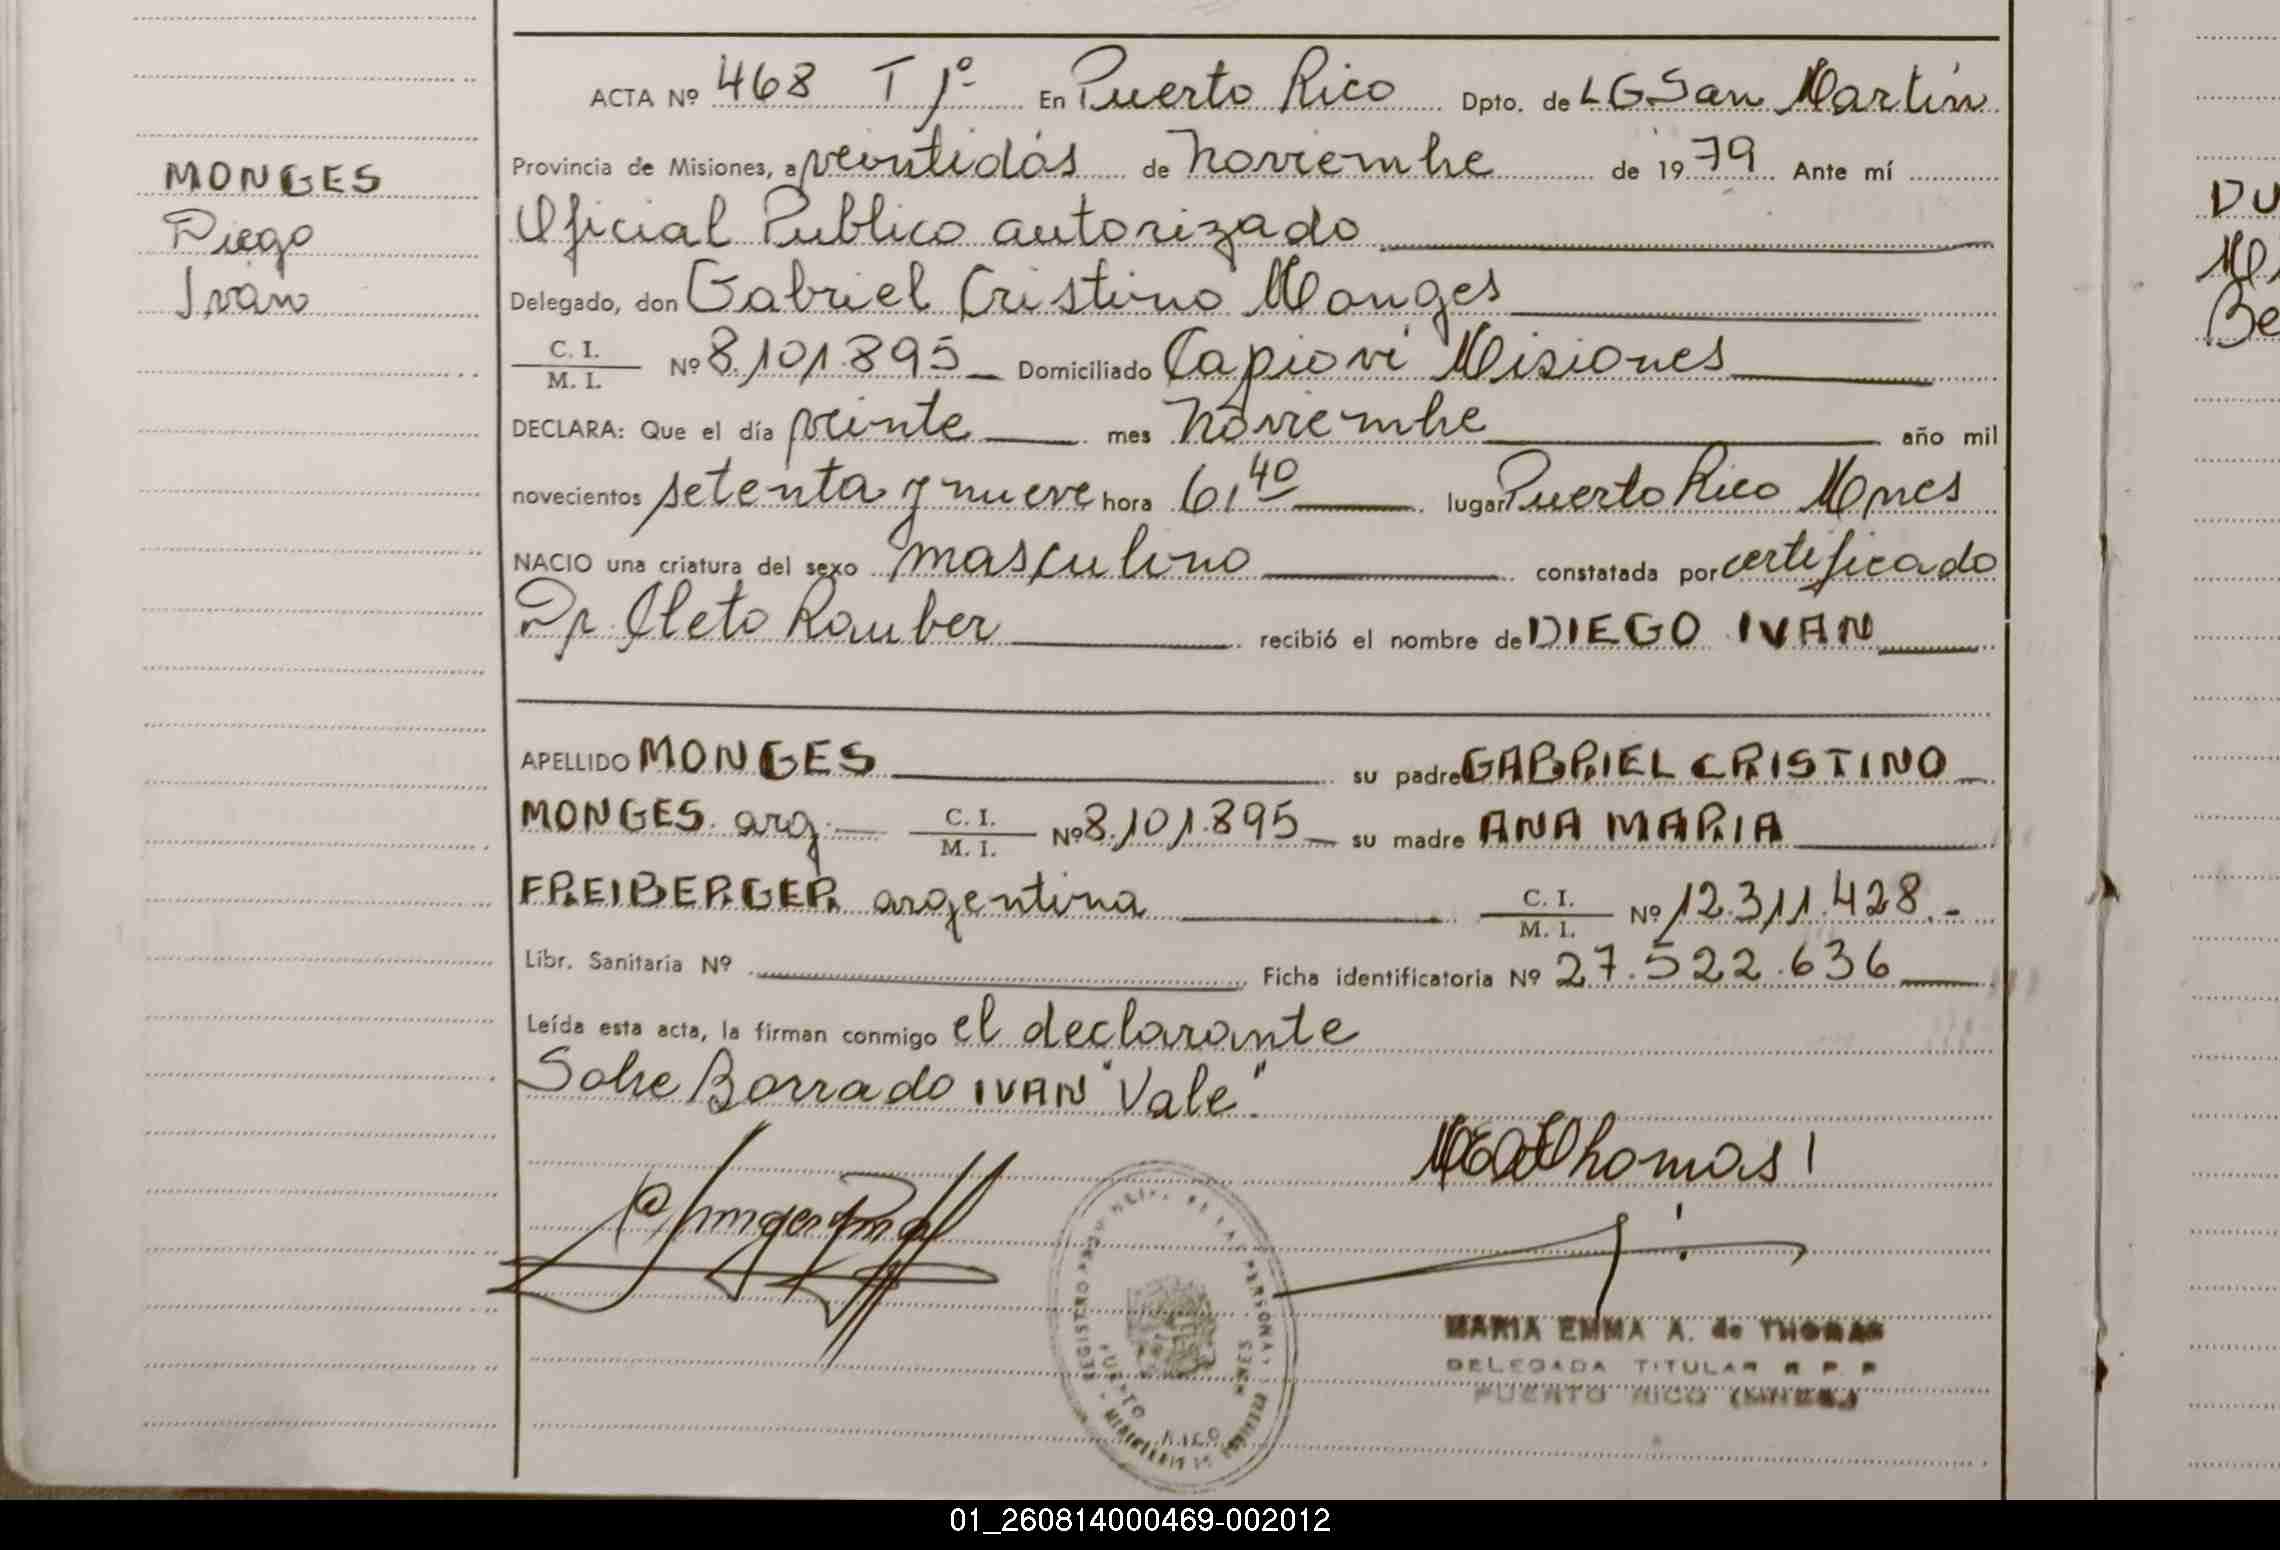 MONGES
Diego
Ivan
ACTA Nº 468 T 1º En Puerto Rico Dpto. de L G San Martín
Provincia de Misiones, a veintidós de Noviembre de 1979 Ante mí
Oficial Publico autorizado
Delegado, don Gabriel Cristino Monges
C. I.
M. I. Nº 8.101.895 Domiciliado Capiovi Misiones
DECLARA: Que el día veinte mes Noviembre año mil
novecientos setenta y nueve hora 6,40 lugar Puerto Rico Mnes
NACIO una criatura del sexo masculino constatada por certificado
Dr. Cleto Rauber recibió el nombre de DIEGO IVAN
APELLIDO MONGES su padre GABRIEL CRISTINO
MONGES arg. C. I. M. I. Nº 8.101.895 su madre ANA MARIA
FREIBERGER argentina C. I. M. I. Nº 12.311.428.-
Libr. Sanitaria Nº Ficha identificatoria Nº 27.522.636
Leída esta acta, la firman conmigo el declarante
Sobre Borrado IVAN "Vale"
MARIA EMMA A. de THOMAS
DELEGADA TITULAR R P P
PUERTO RICO (MNES.)
PUERTO RICO
DU
Be
01_260814000469-002012